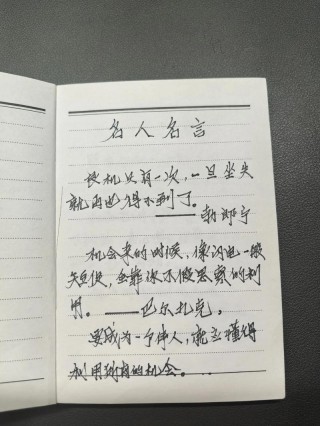 名人名言
良机只有一次，一旦坐失
就再也得不到了。
——勃朗宁
机会来的时候，像闪电一般
短促，全靠你不假思索的利
用。——巴尔扎克。
要成为一个伟人，就应懂得
利用所有的机会。